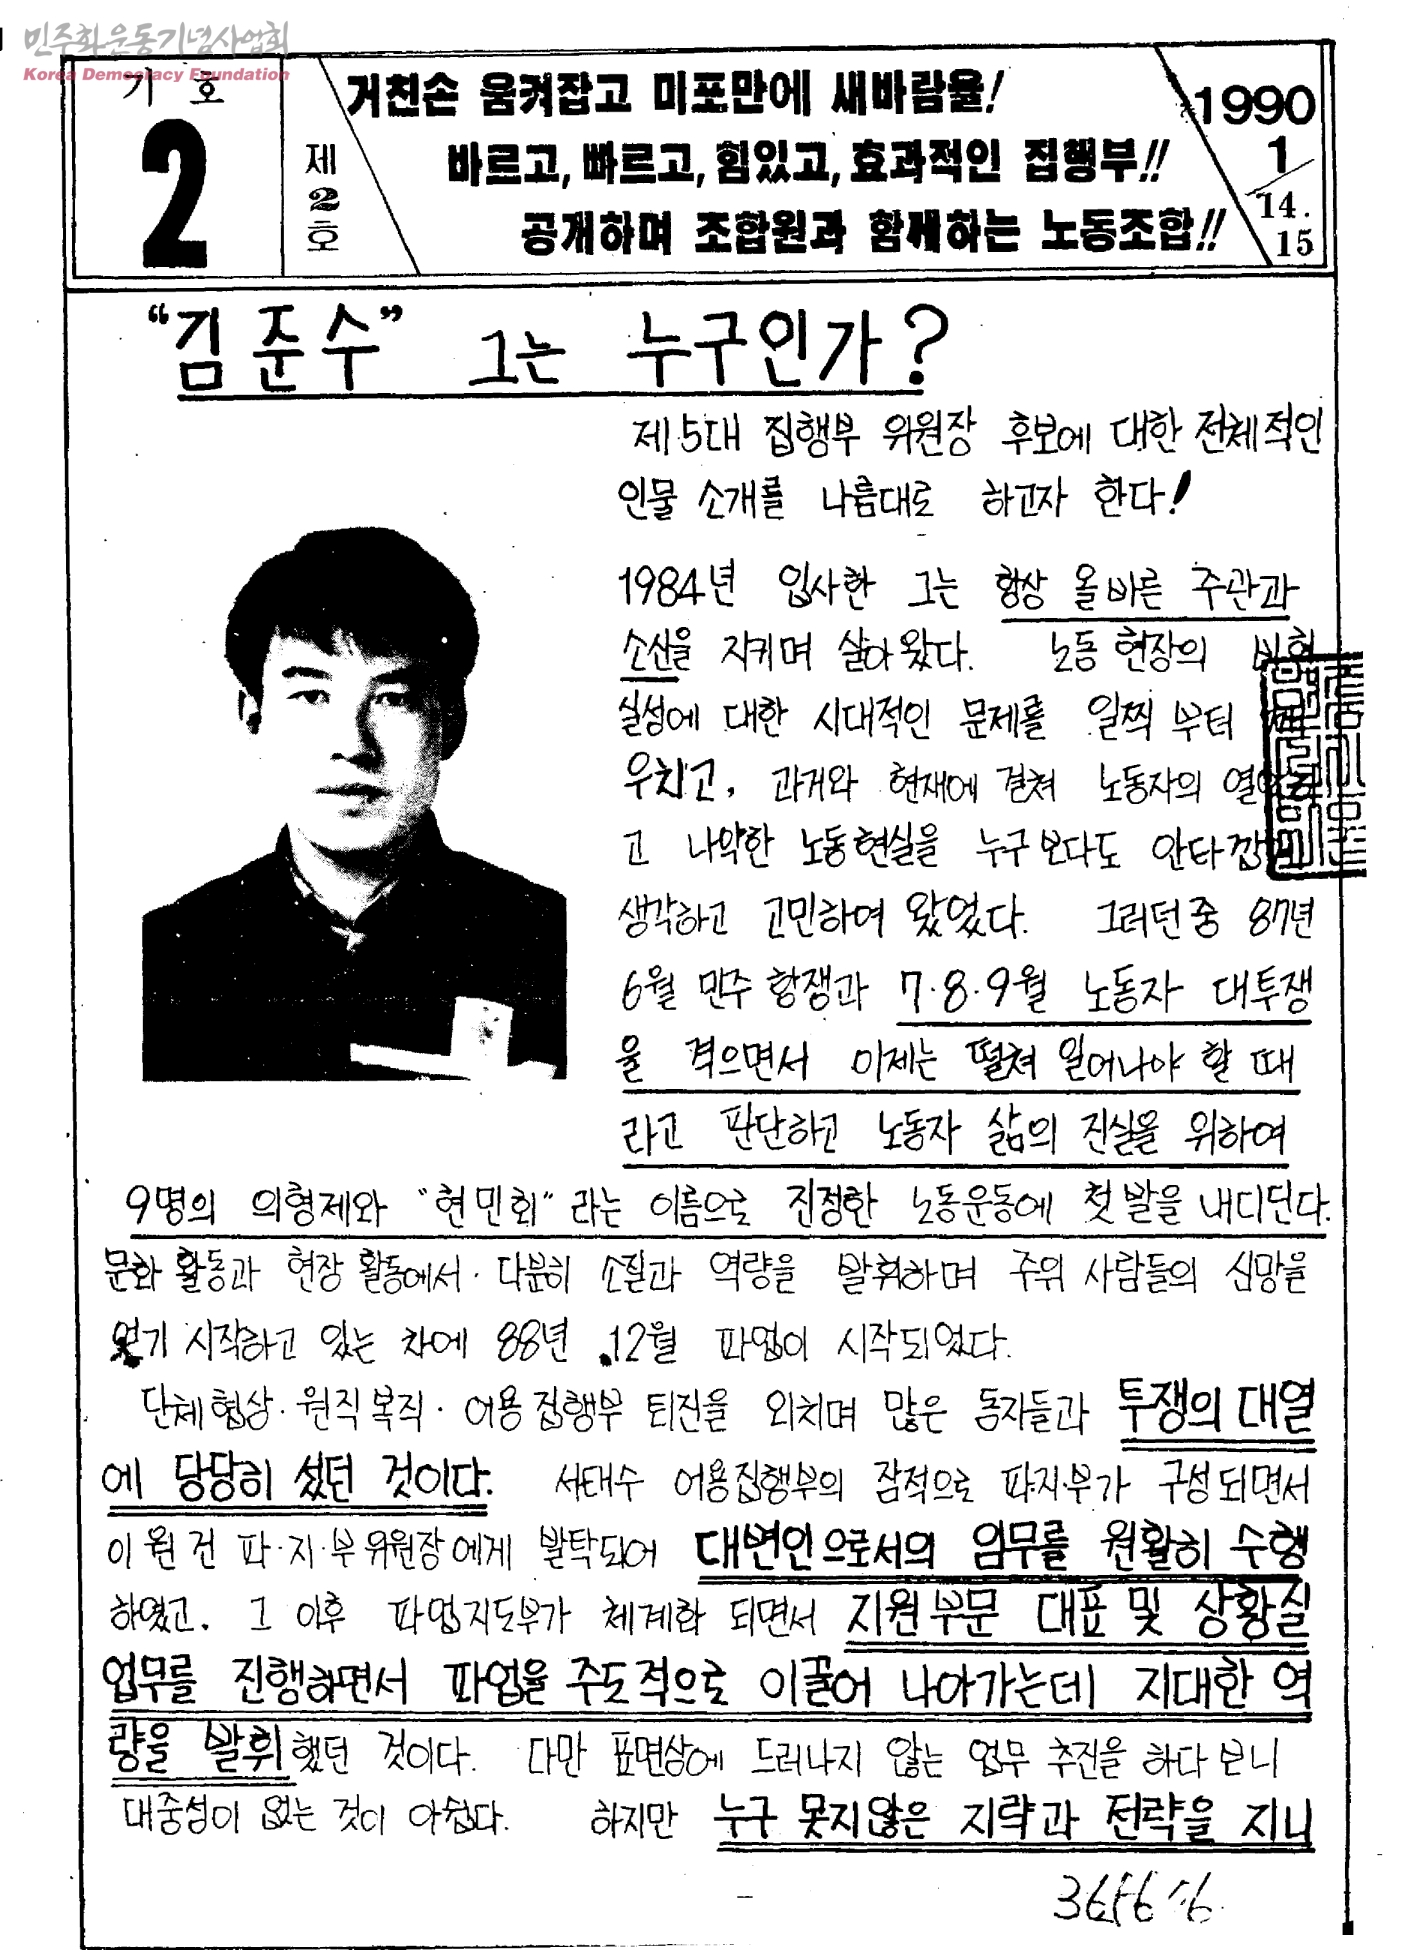 민주화운동기념사업회
Korea Democracy Foundation
기 호
2
제
2
호
거친손 움켜잡고 미포만에 새바람을!
바르고, 빠르고, 힘있고, 효과적인 집행부!!
공개하며 조합원과 함께하는 노동조합!!
1990
1
14.
15
"김준수" 그는 누구인가?
제5대 집행부 위원장 후보에 대한 전체적인
인물 소개를 나름대로 하고자 한다!
1984년 입사한 그는 항상 올바른 주관과
소신을 지키며 살아왔다. 노동 현장의 비현
실성에 대한 시대적인 문제를 일찍 부터
우치고, 과거와 현재에 걸쳐 노동자의
고 나약한 노동현실을 누구보다도
생각하고 고민하여 왔었다. 그러던중 87년
6월 민주 항쟁과 7·8·9월 노동자 대투쟁
을 겪으면서 이제는 떨쳐 일어나야 할 때
라고 판단하고 노동자 삶의 진실을 위하여
9명의 의형제와 "현민회" 라는 이름으로 진정한 노동운동에 첫발을 내디딘다.
문화 활동과 현장 활동에서 · 다분히 소질과 역량을 발휘하며 주위 사람들의 신망을
얻기 시작하고 있는 차에 88년 .12월 파업이 시작되었다.
단체협상 · 원직복직 · 어용집행부 퇴진을 외치며 많은 동자들과 투쟁의 대열
에 당당히 섰던 것이다. 서태수 어용집행부의 잠적으로 파·지·부가 구성되면서
이원건 파·지·부위원장에게 발탁되어 대변인으로서의 임무를 원활히 수행
하였고. 그 이후 파업지도부가 체계화 되면서 지원부문 대표 및 상황실
업무를 진행하면서 파업을 주도적으로 이끌어 나아가는데 지대한 역
량을 발휘했던 것이다. 다만 표면상에 드러나지 않는 업무 추진을 하다보니
대중성이 없는 것이 아쉽다. 하지만 누구 못지않은 지략과 전략을 지니